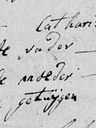 Cathari
de vader
de moeder
getuijgen